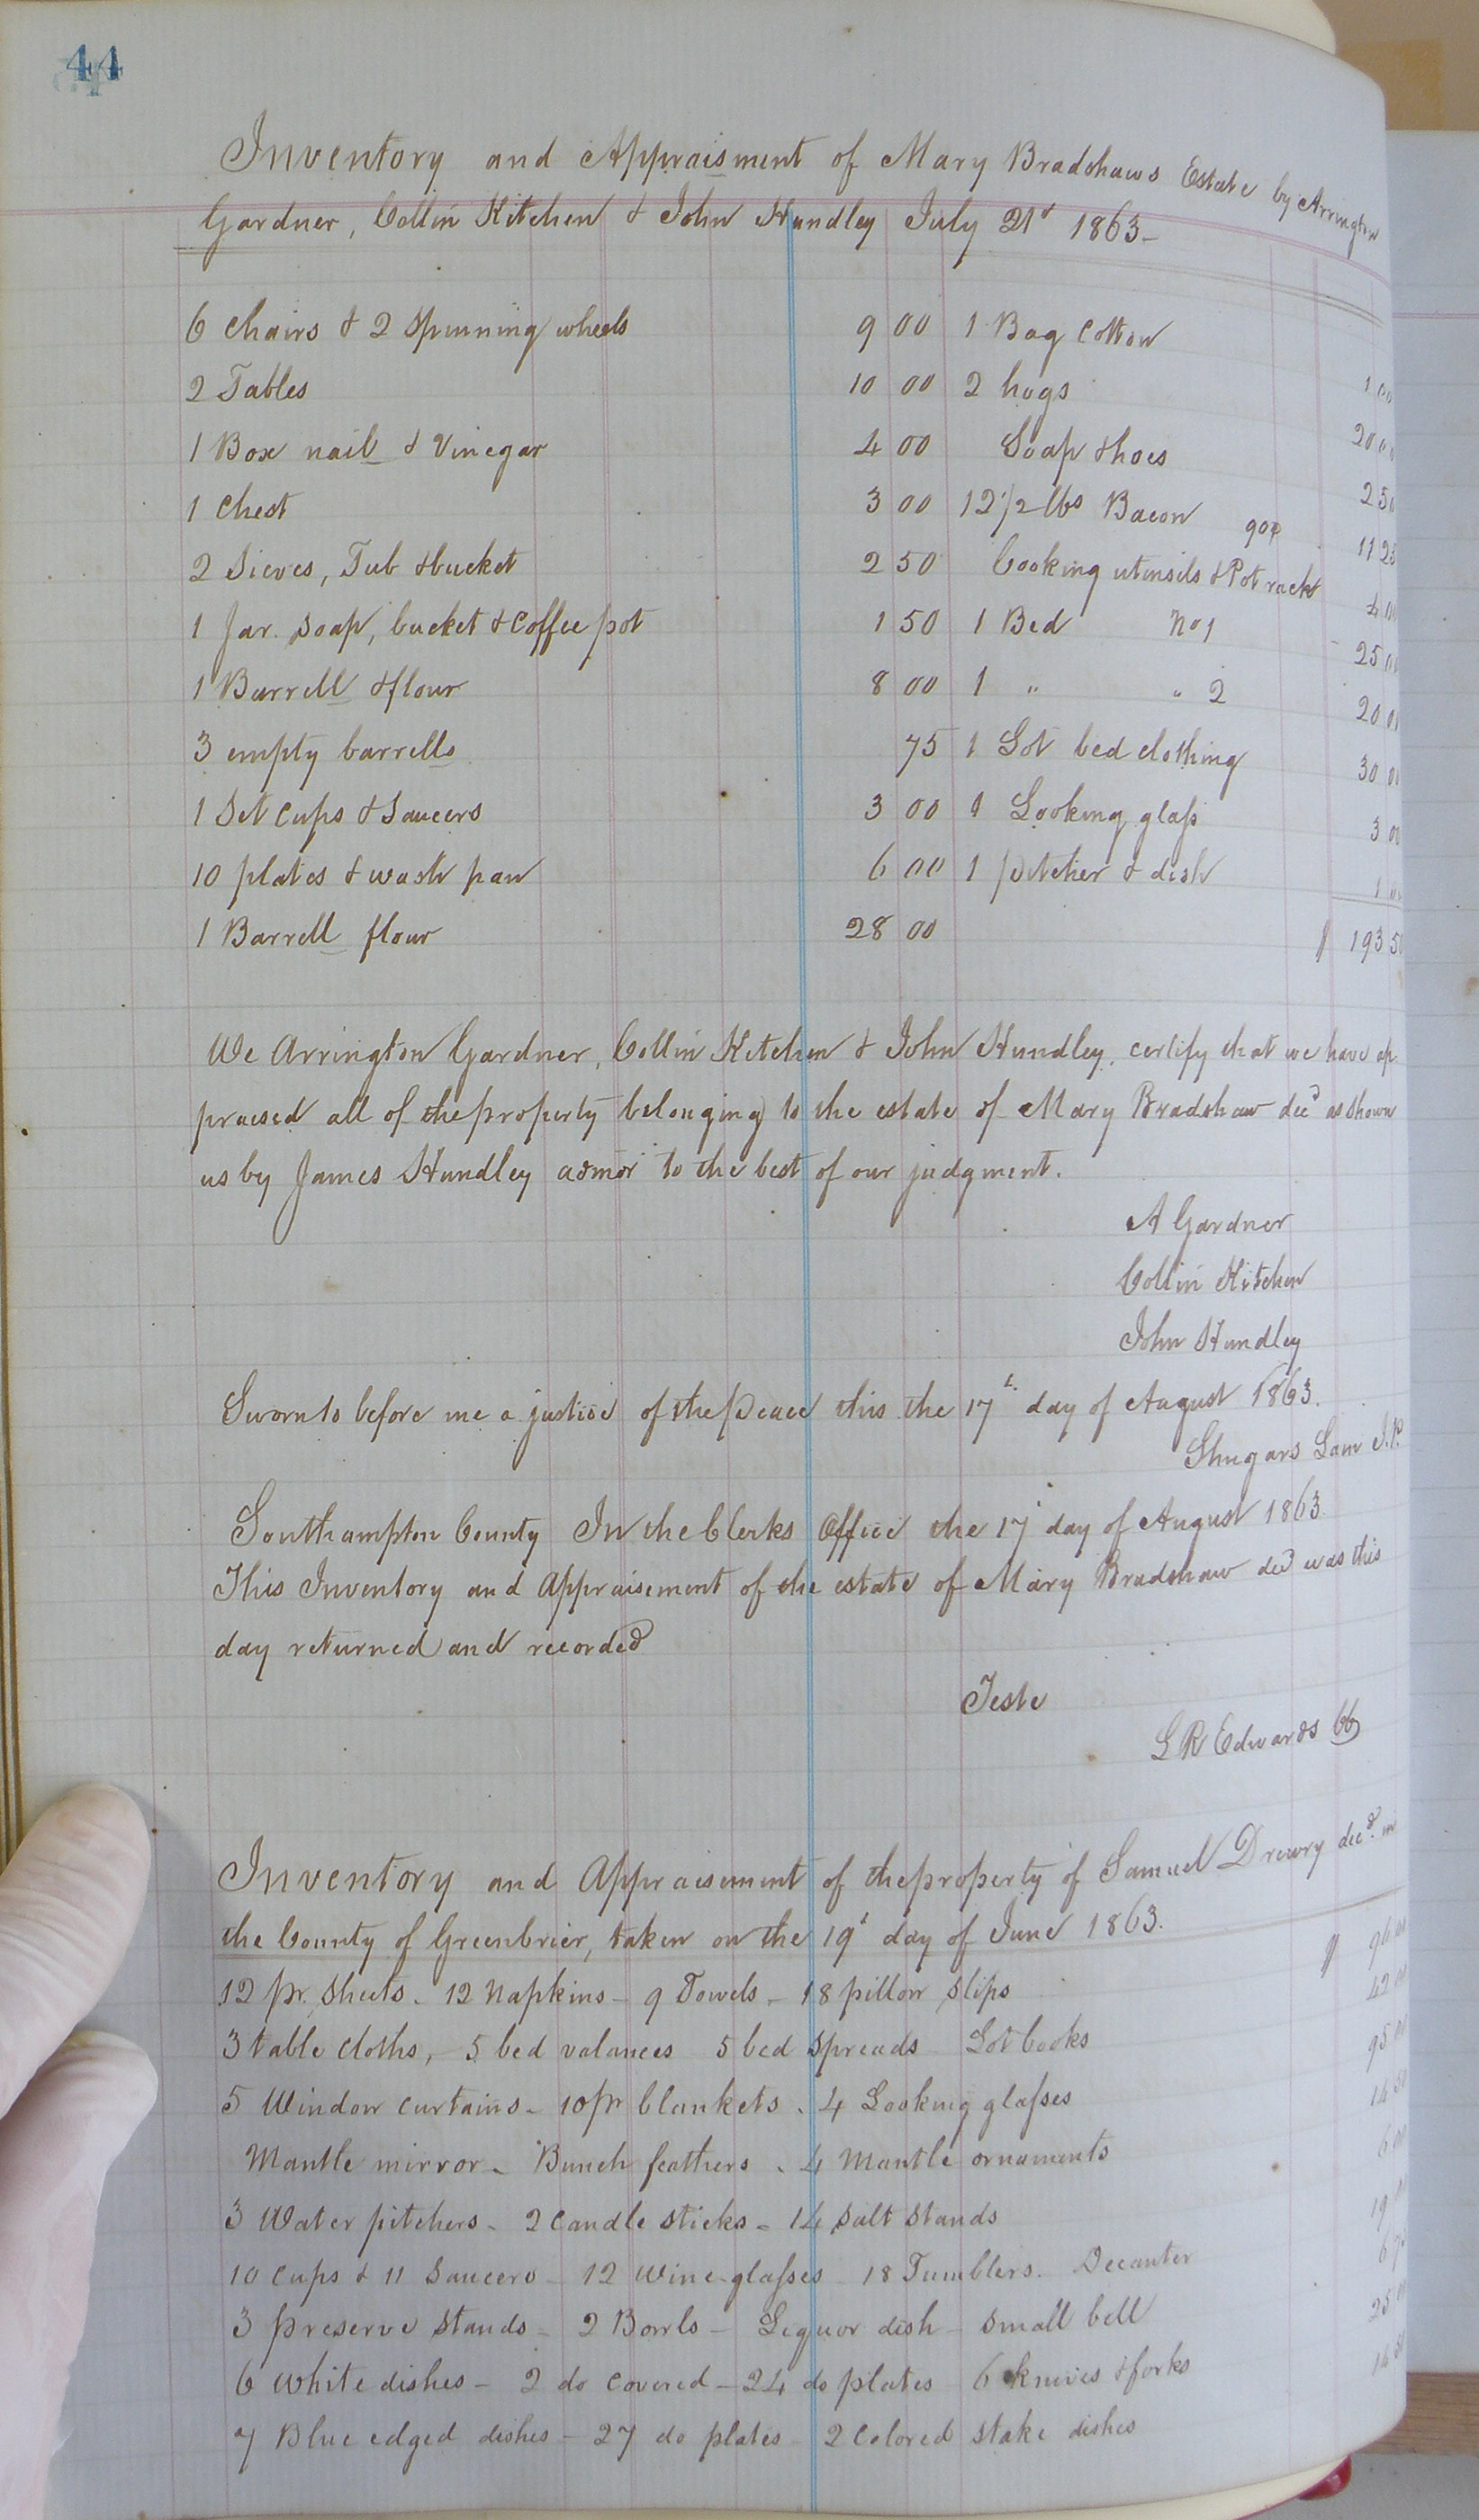 44
Inventory and Appraisment of Mary Bradshaws Estate by Arrington
Gardner, Collin Kitchen & John Hundley July 21st 1863-
6 Chairs & 2 Spinning wheels 9 00 1 Bag Cotton 1 00
2 Tables 10 00 2 hogs 20 00
1 Box nails & Vinegar 4 00 Soap & hoes 2 50
1 Chest 3 00 12 1/2 lbs Bacon 90¢ 11 25
2 Sieves, Tub & bucket 2 50 Cooking utensils & Pot rack 4 00
1 Jar Soap, bucket & Coffee pot 1 50 1 Bed No 1 25 00
1 Barrell & flour 8 00 1 " " 2 20 00
3 empty barrells 75 1 Lot bed clothing 30 00
1 Set Cups & Saucers 3 00 1 Looking glass 3 00
10 plates & wash pan 6 00 1 pitcher & dish 1 00
1 Barrell flour 28 00 $ 193 50
We Arrington Gardner, Collin Kitchen & John Hundley, certify that we have ap
praised all of the property belonging to the estate of Mary Bradshaw decd as shown
us by James Hundley admor to the best of our judgment.
A Gardner
Collin Kitchen
John Hundley
Sworn to before me a justice of the Peace this the 17t day of August 1863.
Shugars Lain J.P.
Southampton County In the Clerks Office the 17 day of August 1863
This Inventory and Appraisement of the estate of Mary Bradshaw decd was this
day returned and recorded
Teste
L R Edwards CC
Inventory and Appraisement of the property of Samuel Drewry decd. in
the County of Greenbrier, taken on the 19t day of June 1863.
12 pr. Sheets - 12 Napkins - 9 Towels - 18 pillow slips $ 96 00
3 table cloths, 5 bed valances 5 bed Spreads Lot books 42 00
5 Window curtains - 10 pr blankets - 4 Looking glasses 95 00
Mantle mirror - Bunch feathers - 4 Mantle ornaments 14 50
3 Water pitchers - 2 Candle sticks - 14 Salt Stands 6 00
10 Cups & 11 Saucers - 12 Wine glasses - 18 Tumblers. Decanter 19
3 preserve Stands - 2 Bowls - Liquor dish - Small bell 6
6 White dishes - 2 do covered - 24 do plates 6 knives & forks 25
7 Blue edged dishes - 27 do plates - 2 Colored stake dishes 14